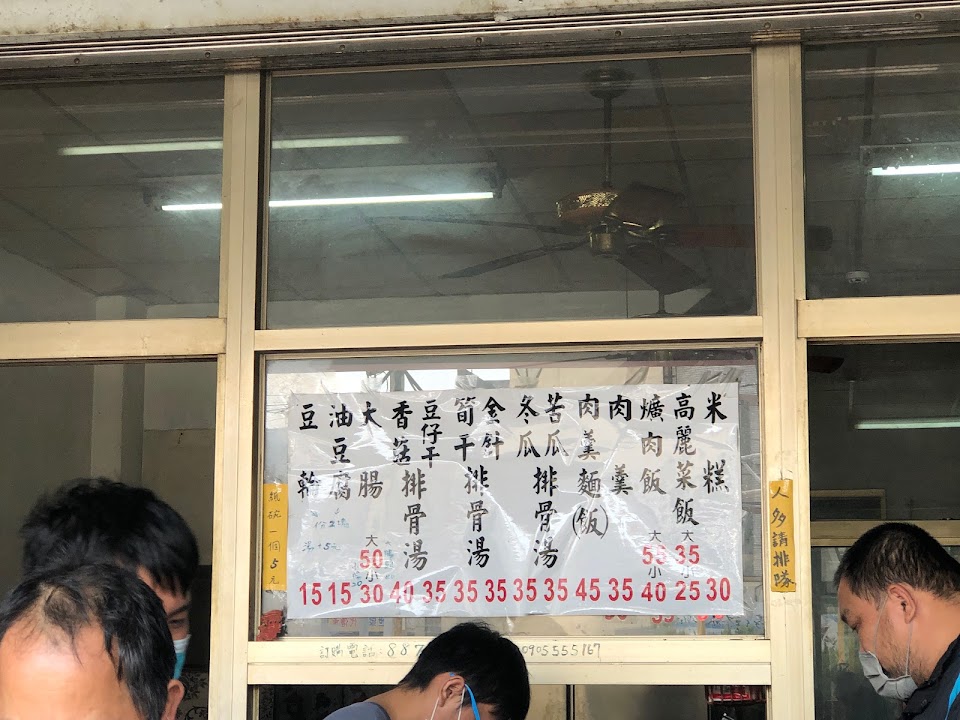 米糕 30
高麗菜飯 大35 小25
爌肉飯 大55 小40
肉羹 35
肉羹麵(飯) 45
苦瓜排骨湯 35
冬瓜排骨湯 35
金針排骨湯 35
筍干排骨湯 35
豆仔干排骨湯 35
香菇排骨湯 40
大腸 大50 小30
油豆腐 15
豆輪 15
人多請排隊
紙碗一個5元
訂購電話:887
0905555167